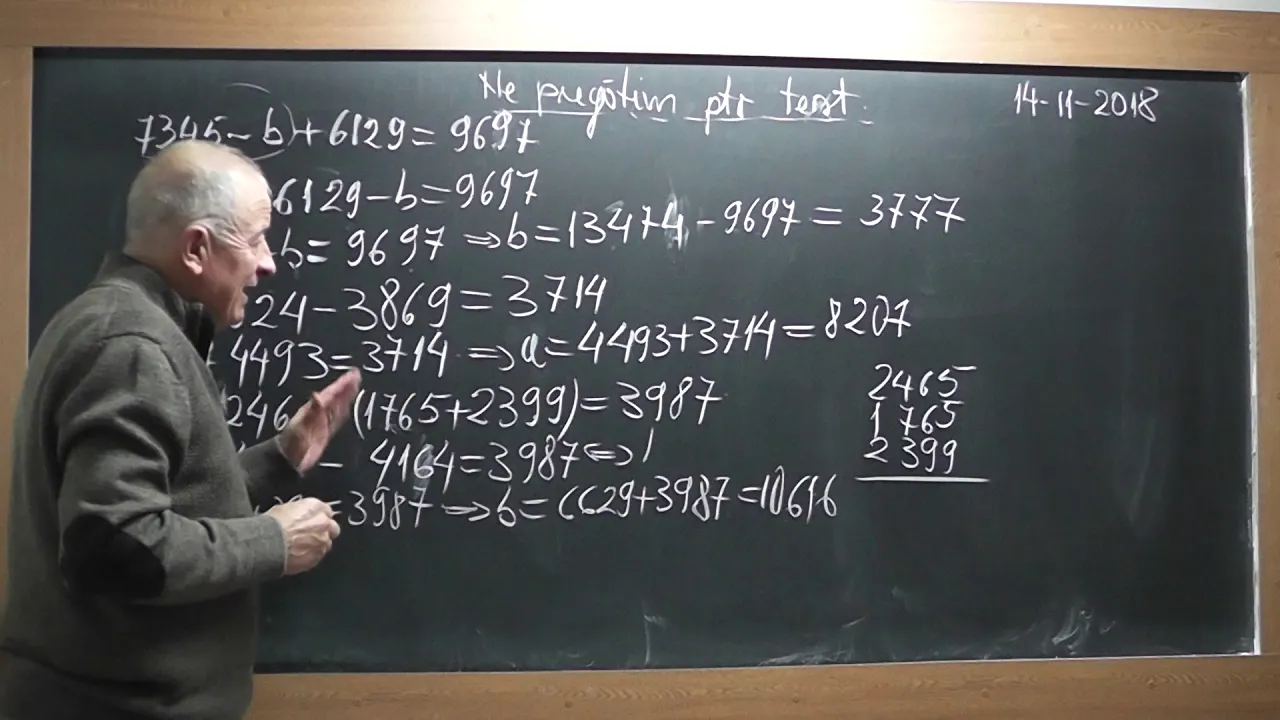 Ne pregătim ptr test.
14-11-2018
7345-b)+6129=9697
6129-b=9697
b=9697 ⇒b=13474-9697=3777
24-3869=3714
4493=3714 ⇒a=4493+3714=8207
246 (1765+2399)=3987
- 4164=3987⇔
=3987 ⇒b=6629+3987=10616
2465
1765
2399